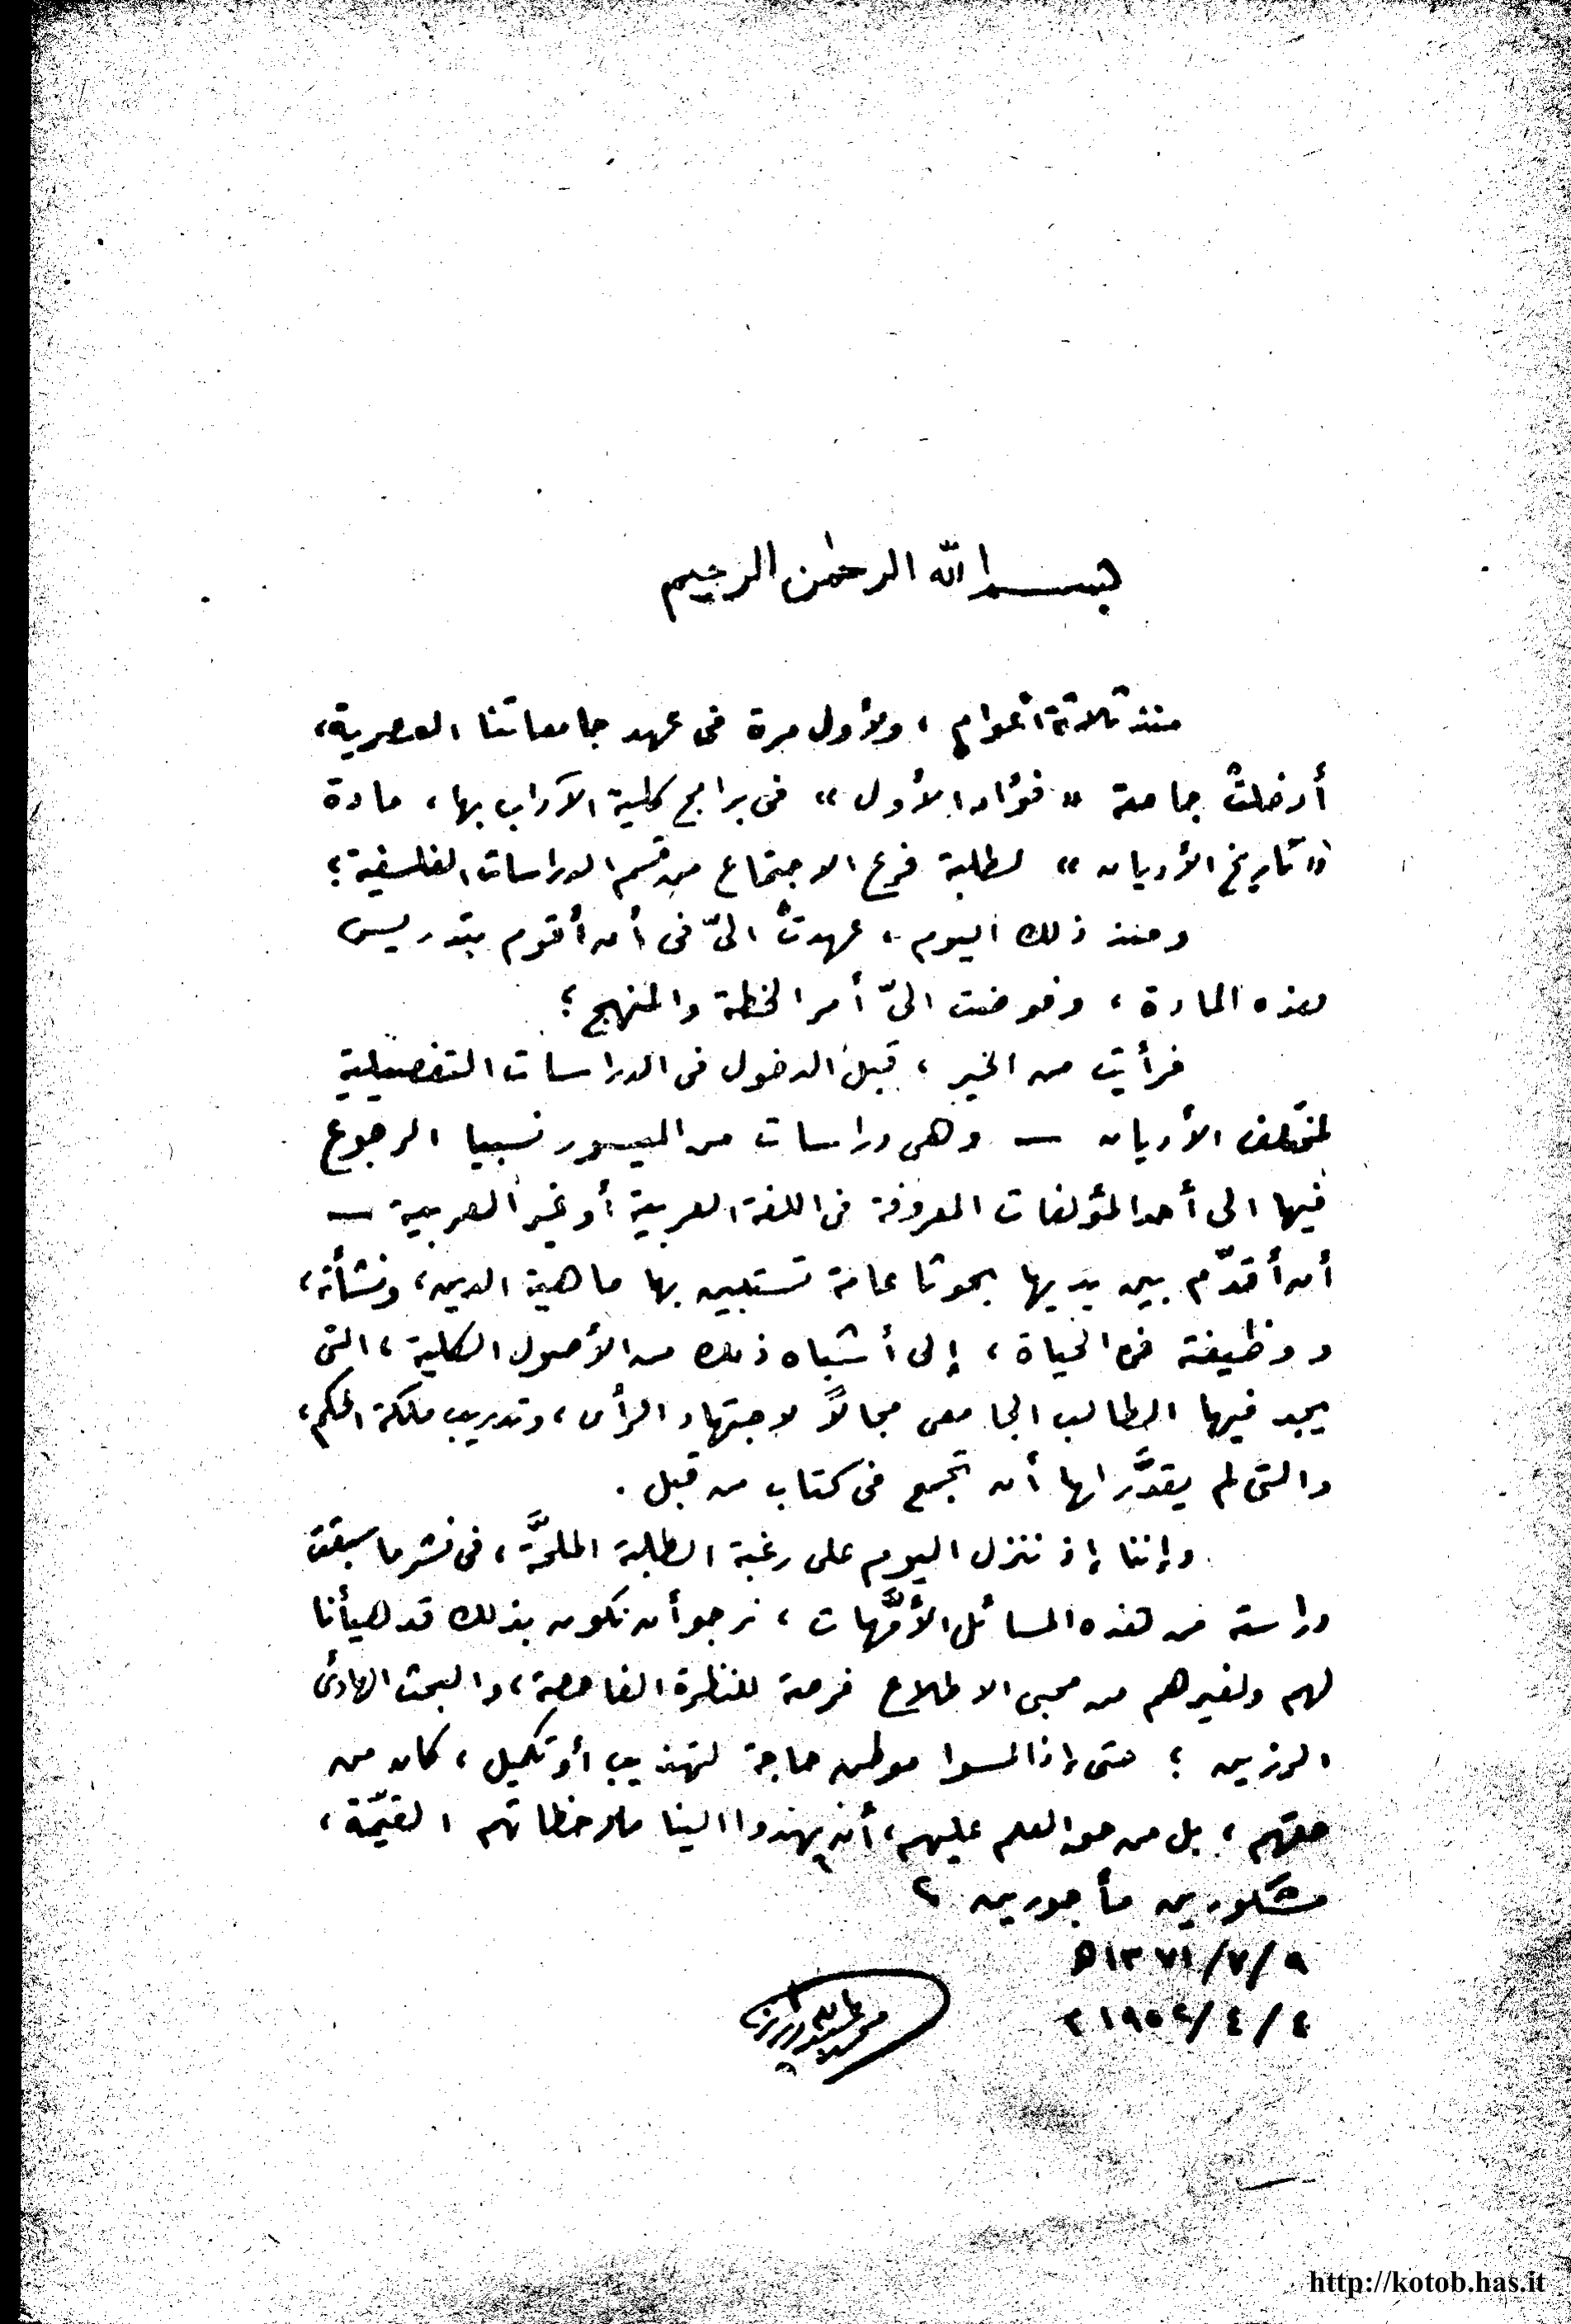 بسم الله الرحمٰن الرحيم
منذ ثلاثة أعوام ، ولأول مرة فى عهد جامعاتنا العصرية،
أدخلتْ جامعة « فؤاد الأول » فى برامج كلية الآداب بها ، مادة
« تاريخ الأديان » لطلبة فرع الاجتماع من قسم الدراسات الفلسفية ؛
ومنذ ذلك اليوم ، عهدتْ الىّ فى أن أقوم بتدريس
هذه المادة ، وفوضت الىّ أمر الخطة والمنهج ؛
فرأيت من الخير ، قبل الدخول فى الدراسات التفصيلية
لمختلف الأديان — وهى دراسات من الميسور نسبيا الرجوع
فيها الى أحد المؤلفات المعروفة فى اللغة العربية أو غير العربية —
أن أقدّم بين يديها بحوثا عامة تستبين بها ماهية الدين، ونشأته،
ووظيفته فى الحياة ، إلى أشباه ذلك من الأصول الكلية ، التى
يجد فيها الطالب الجامعى مجالاً لاجتهاد الرأى ، وتدريب ملكة الحكم،
والتى لم يقدَّر لها أن تجمع فى كتاب من قبل .
وإننا إذ ننزل اليوم على رغبة الطلبة الملحَّة ، فى نشر ما سبقت
دراسته من هذه المسائل الأمَّهات ، نرجو أن نكون بذلك قد هيأنا
لهم ولغيرهم من محبى الاطلاع فرصة للنظرة الفاحصة ، والبحث الهادئ
الرزين ؛ حتى إذا لمسوا موطن حاجة لتهذيب أو تكميل ، كان من
حقهم ، بل من حق العلم عليهم ، أن يهدوا الينا ملاحظاتهم القيّمة ،
مشكورين مأجورين ؟
٩ / ٧ / ١٣٧١ ه
٤ / ٤ / ١٩٥٢ م
محمد عبد الله دراز
http://kotob.has.it